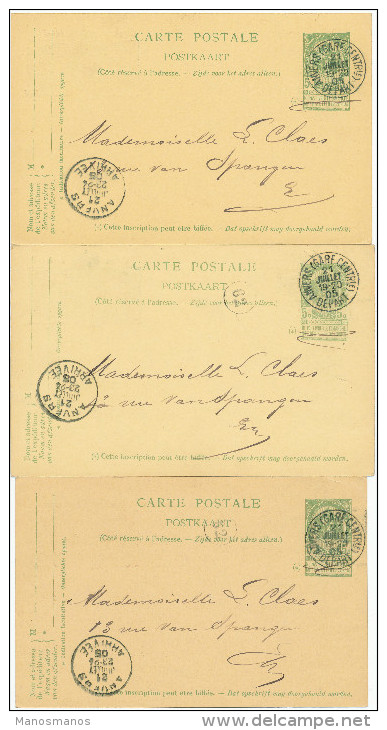 CARTE POSTALE
POSTKAART
(Côté réservé à l'adresse. — Zijde voor het adres alleen.)
ANVERS (GARE CENTRLE)
21
JUILLET
19-20
05
DÉPART
Mademoiselle L. Claes
rue van Spangen
ANVERS
21
JUILLET
05
ARRIVÉE
Nom et adresse
de l'expéditeur
(•) Cette inscription peut être biffée. — Dat opschrift mag doorgehaald worden.
CARTE POSTALE
POSTKAART
(Côté réservé à l'adresse.
ANVERS (GARE CENTRLE)
21
JUILLET
19-20
05
DÉPART
Mademoiselle L. Claes
rue Van Spangen
ANVERS
21
JUILLET
05
ARRIVÉE
Nom et adresse
de l'expéditeur
(•) Cette inscription peut être biffée. — Dat opschrift mag doorgehaald worden.
CARTE POSTALE
POSTKAART
(Côté réservé à l'adresse. — Zijde voor het adres alleen.)
ANVERS (GARE CENTRLE)
JUILLET
05
DÉPART
Mademoiselle L. Claes
13 rue van Spangen
ANVERS
21
JUILLET
05
ARRIVÉE
Nom et adresse
de l'expéditeur
inscription peut être biffée. — Dat opschrift mag doorgehaald worden.
Manosmanos
delcampe.net